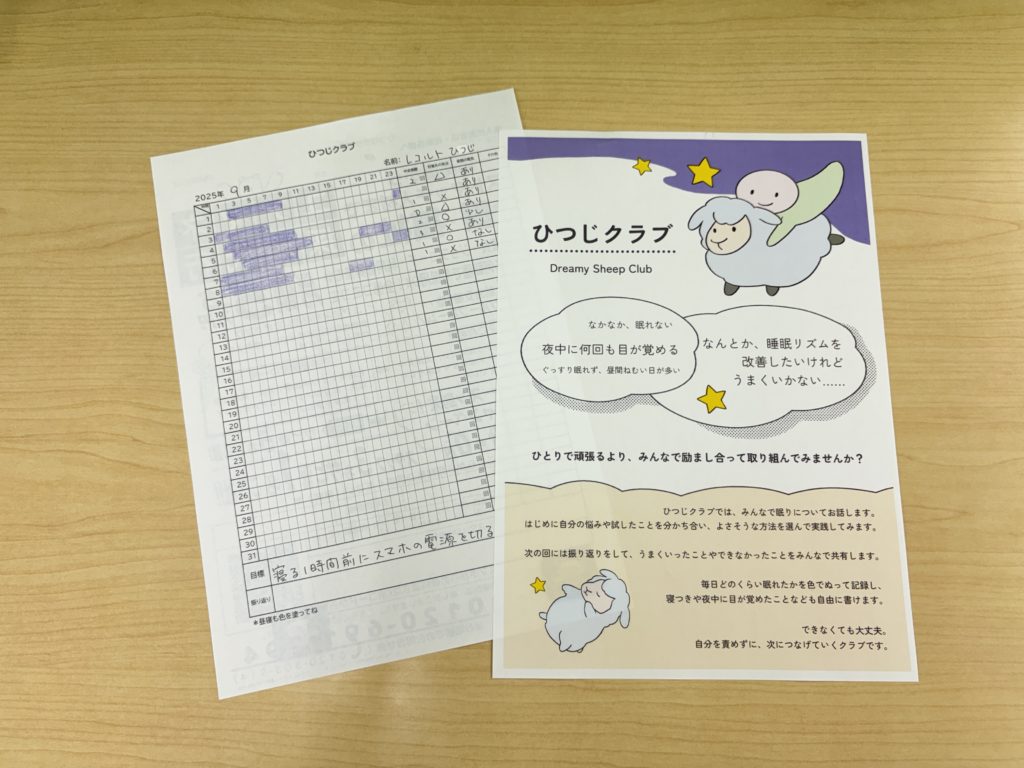 ひつじクラブ
名前: レコルト ひつじ
2025年 9月
時間 1 3 5 7 9 11 13 15 17 19 21 23 中途覚醒
1 2回 △ あり
2 あり
3 1 × あり
4 0 △ あり
5 2 ○ なし
6 3 × あり
7 1 ○ なし
8 1 × なし
9
10
11
12
13
14
15
16
17
18
19
20
21
22
23
24
25
26
27
28
29
30
31
目標 寝る1時間前にスマホの電源を切る
振り返り
*昼寝も色を塗ってね
ひつじクラブ
Dreamy Sheep Club
なかなか、眠れない
夜中に何回も目が覚める
ぐっすり眠れず、昼間ねむい日が多い
なんとか、睡眠リズムを
改善したいけれど
うまくいかない……
ひとりで頑張るより、みんなで励まし合って取り組んでみませんか？
ひつじクラブでは、みんなで眠りについてお話します。
はじめに自分の悩みや試したことを分かち合い、よさそうな方法を選んで実践してみます。
次の回には振り返りをして、うまくいったことやできなかったことをみんなで共有します。
毎日どのくらい眠れたかを色でぬって記録し、
寝つきや夜中に目が覚めたことなども自由に書けます。
できなくても大丈夫。
自分を責めずに、次につなげていくクラブです。